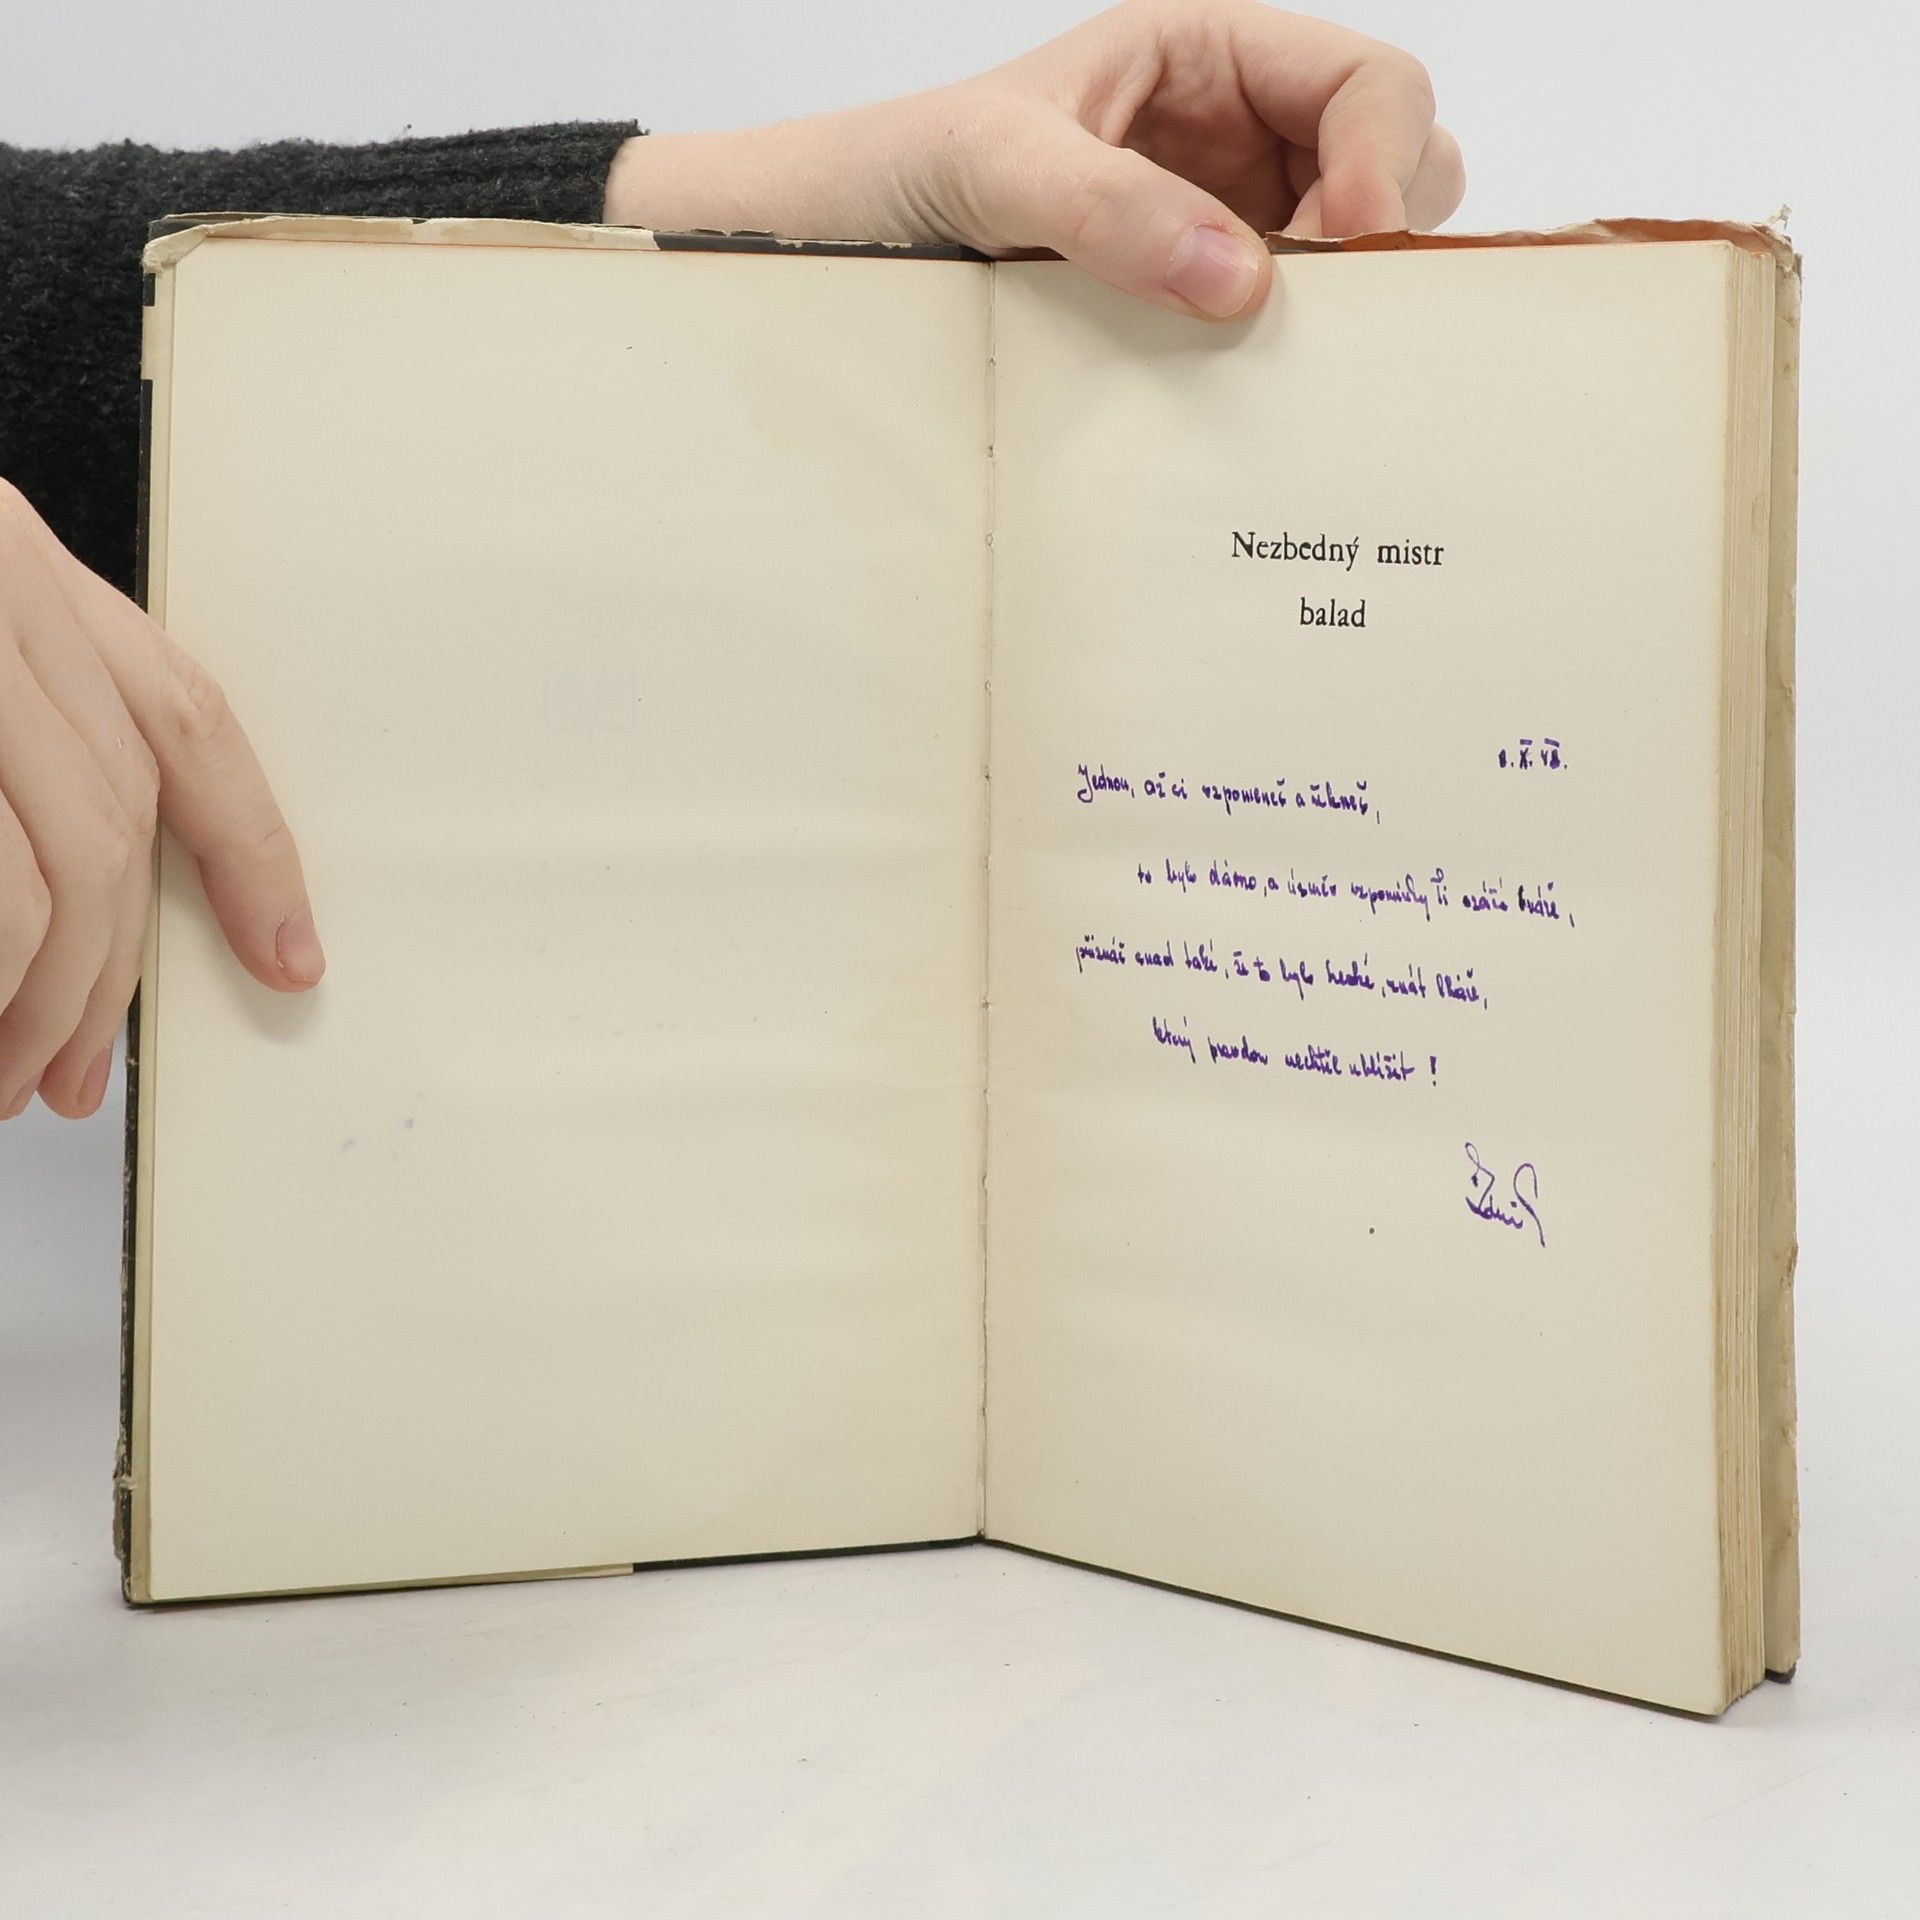 Nezbedný mistr
balad
Jednou, až si vzpomeneš a řekneš,
to bylo dávno, a úsměv vzpomínky Ti ozáří tváře,
přiznáš snad také, že to bylo hezké, znát lháře,
který pravdou nechtěl ublížit!